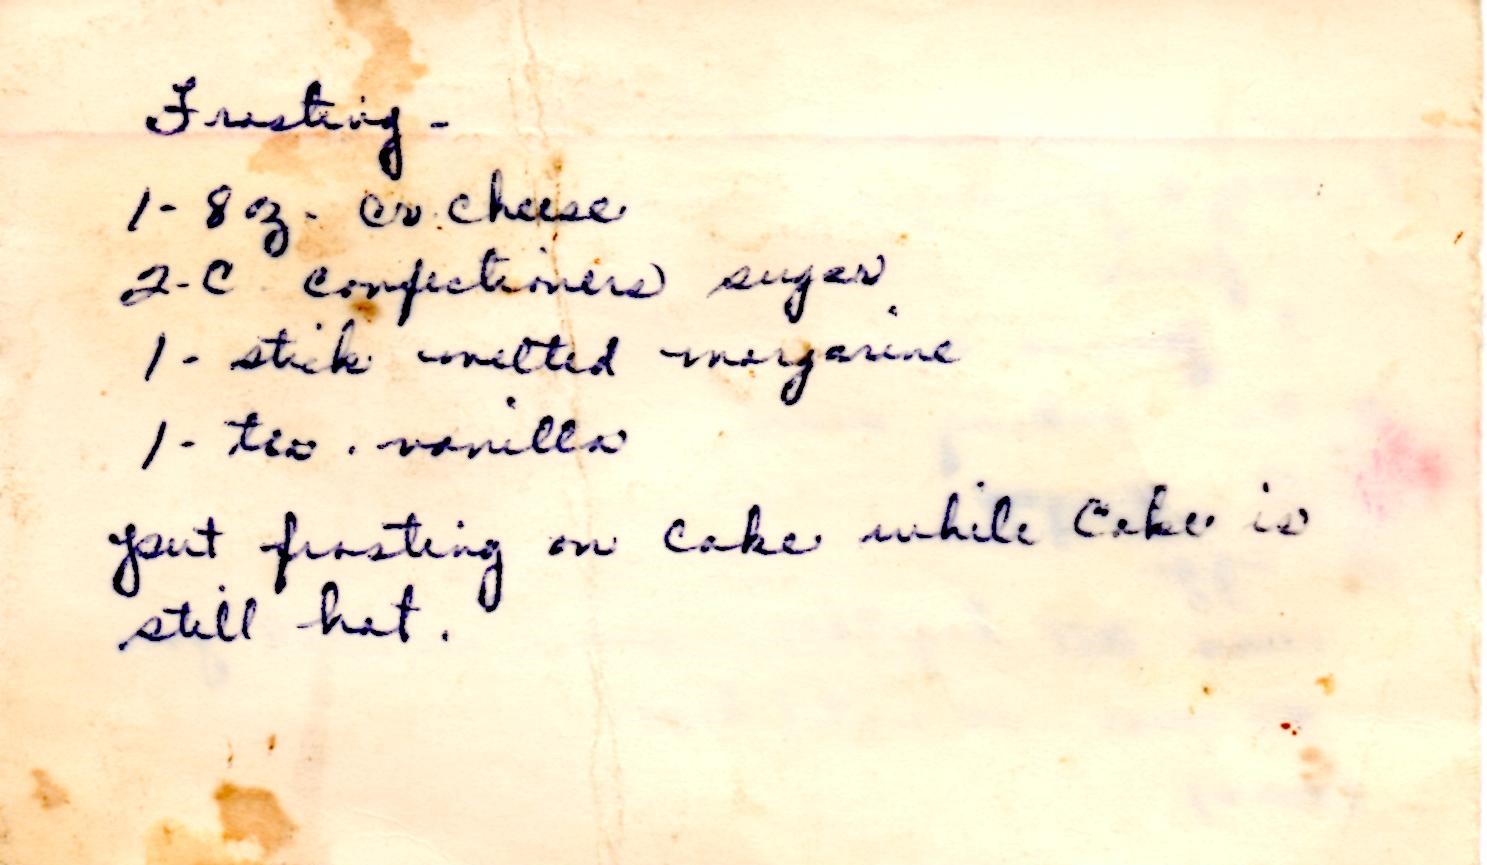 Frosting -
1 - 8 oz. cr. cheese
2 - C confectioners sugar
1 - stick melted margarine
1 - tea. vanilla
put frosting on cake while cake is
still hot.